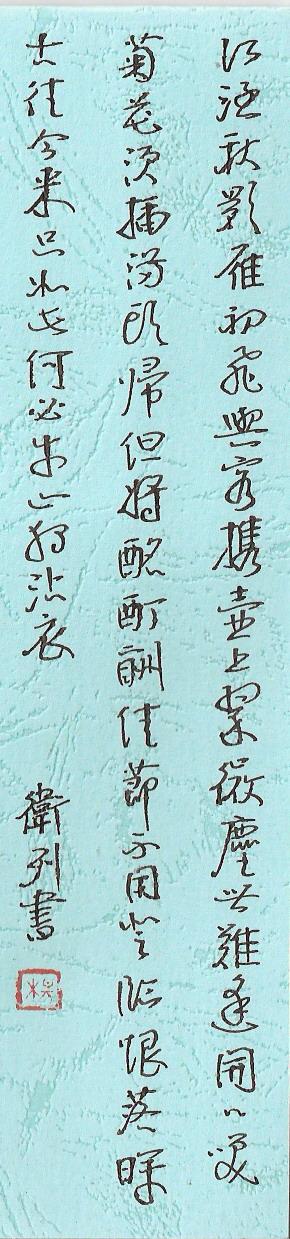 江涵秋影雁初飛與客携壺上翠微塵世難逢開口笑
菊花須插滿頭歸但將酩酊酬佳節不用登臨恨落暉
古往今來只如此何必牛山獨沾衣
衛列書